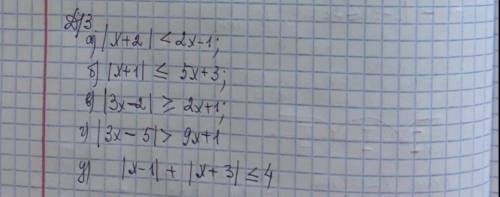 Д/З
а) |x+2| < 2x-1;
б) |x+1| ≤ 5x+3;
в) |3x-2| ≥ 2x+1;
г) |3x-5| > 9x+1
д) |x-1| + |x+3| ≤ 4